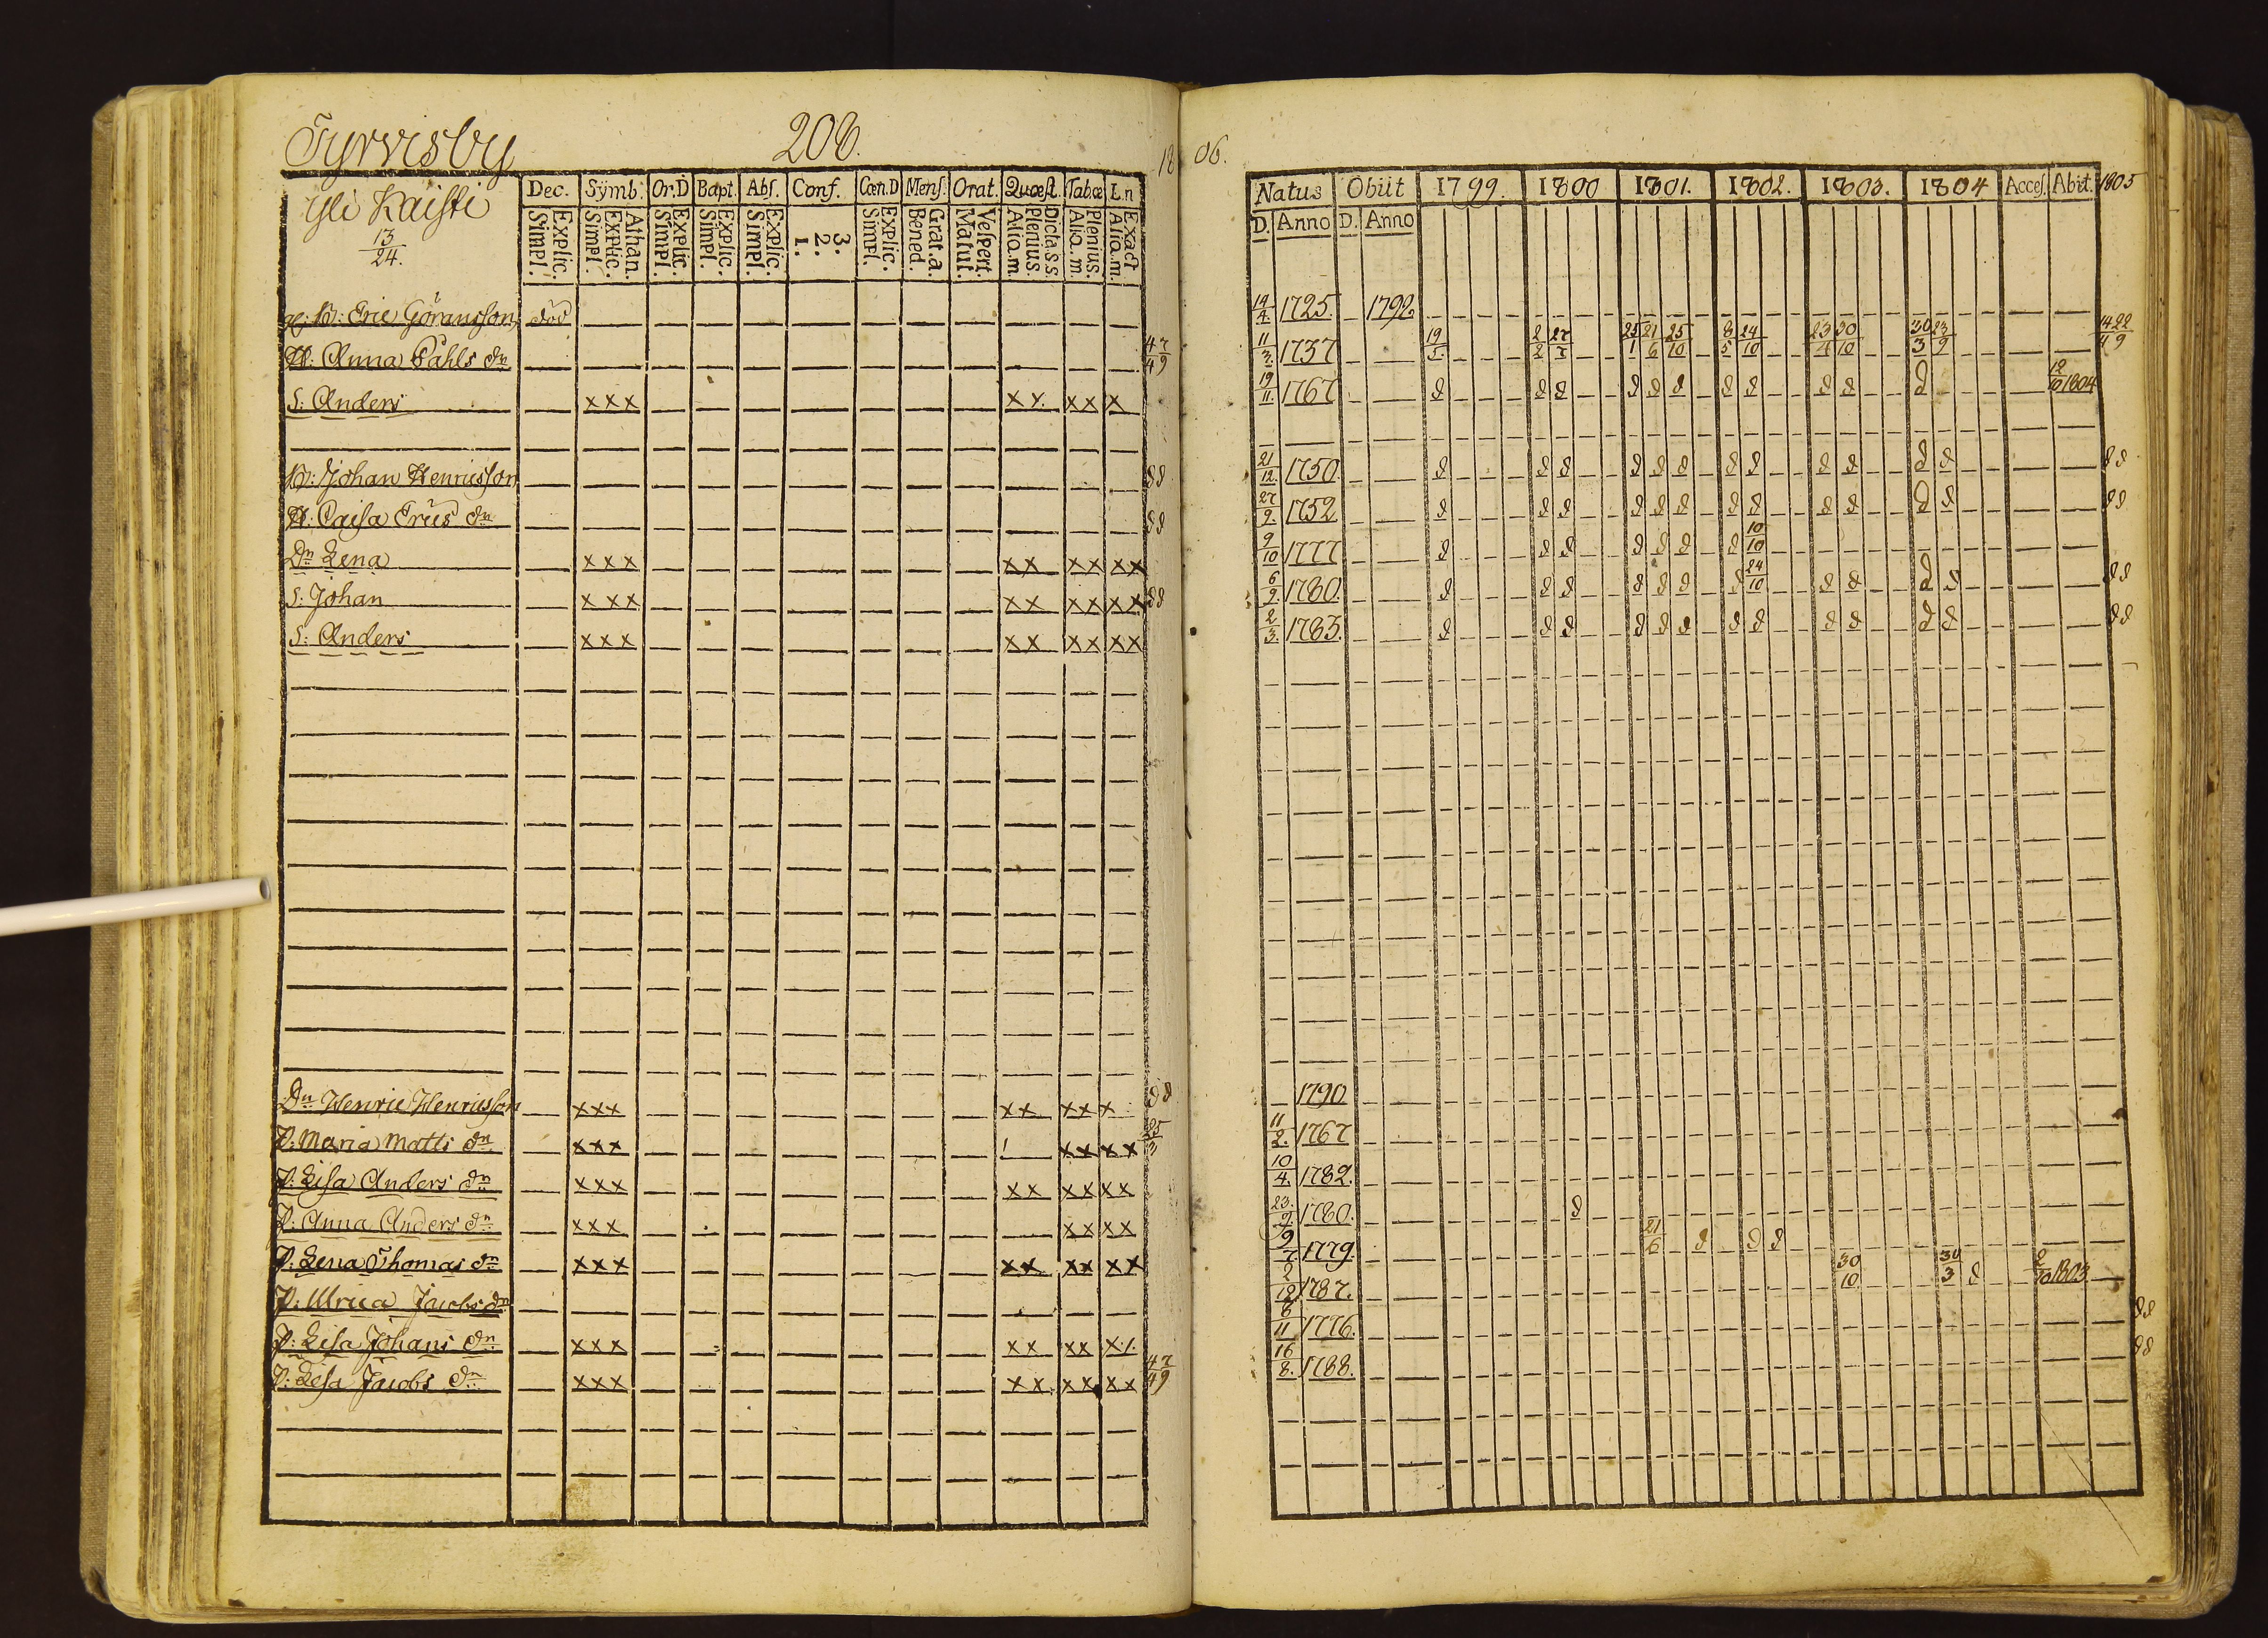 Tyrvisby
208.
18 06.
Yli Kaisti
13/24.
Dec. Symb. Or.D Bapt. Abſ. Conf. Cœn.D Menſ. Orat. Quæſt. Tab.œ L.n
Explic. Simpl. Athan. Explic. Simpl. Explic. Simpl. Explic. Simpl. Explic. Simpl. 3. 2. 1. Explic. Simpl. Grat.a. Bened. Veſpert. Matut. Dicta.s.s. Plenius. Alio.m. Plenius. Alio.m. Exact Alio.m.
Natus Obiit 1799. 1800 1801. 1802. 1803. 1804 Acceſ. Abiit. 1805
D. Anno D. Anno
Eric Göransson död 14/4. 1725. 1792.
H: Anna Påhls dn 47/49 11/3. 1737 19/5. 2/2 27/7 25/1 21/6 25/10 8/5 24/10 23/4 30/10 30/3 23/9
S: Anders xxx xx xx x 19/11. 1767 d d d d d d d d d d d 12/10 1804
B: Johan Henricsson dd 21/12. 1750 d d d d d d d d d d d d dd
H: Caisa Erics dn dd 27/9. 1752 d d d d d d d d d d d d dd
Dn Lena xxx xx xx xx 9/10 1777 d d d d d d d 10/10
S: Johan xxx xx xx xx dd 6/9. 1780. d d d d d d d 24/10 d d d d dd
S: Anders xxx xx xx xx 2/3. 1783. d d d d d d d d d d d d dd
Dn Henric Henricsson xxx xx xx x dd 1790
P: Maria Matts dn xxx xx xx 25/3 11/2. 1767
P: Lisa Anders dn xxx xx xx xx 10/4. 1782.
P: Anna Anders dn xxx xx xx 23/9. 1780. d
P: Lena Thomas dn xxx xx xx xx 9/7. 1779. 21/6 d d d
P: Ulrica Jacobs dn 2/12 1787. 30/10 30/3 d 2/10 1803
P: Lisa Johans dn xxx xx xx 8/11 1776. dd
P: Lisa Jacobs dn xxx xx xx xx 47/49 16/8. 1788. dd